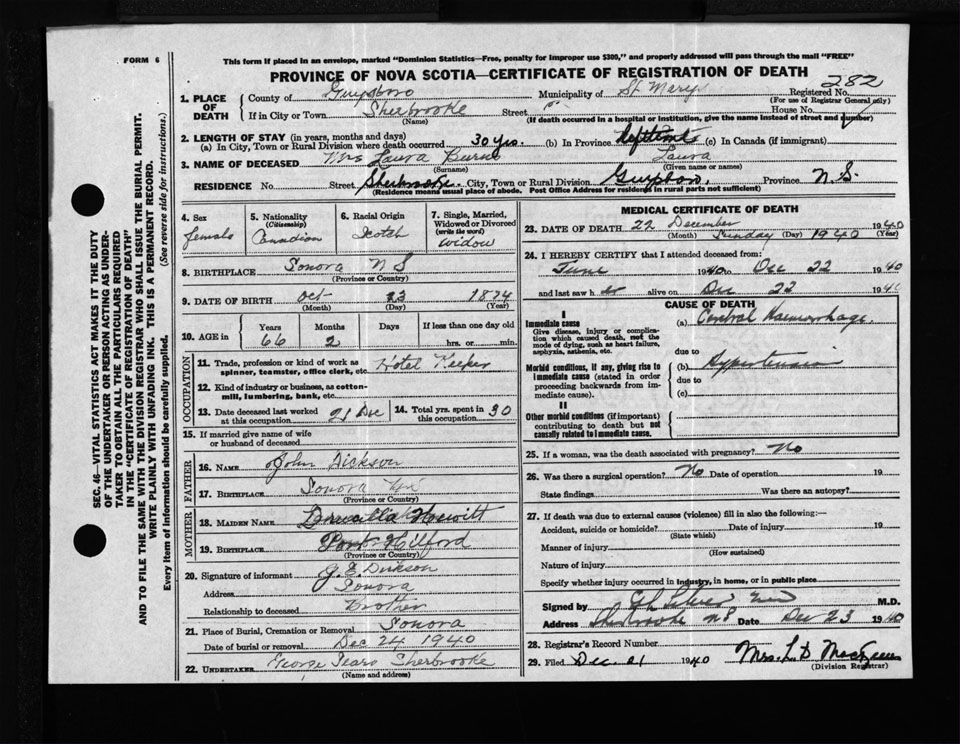 FORM 6
This form if placed in an envelope, marked "Dominion Statistics—Free, penalty for improper use $300," and properly addressed will pass through the mail "FREE"
PROVINCE OF NOVA SCOTIA—CERTIFICATE OF REGISTRATION OF DEATH
282
1. PLACE OF DEATH
County of Guysboro Municipality of St. Marys Registered No.
(For use of Registrar General only)
If in City or Town Sherbrooke Street House No.
(Name) (If death occurred in a hospital or institution, give the name instead of street and number)
2. LENGTH OF STAY (in years, months and days)
(a) In City, Town or Rural Division where death occurred 30 yrs. (b) In Province (c) In Canada (if immigrant)
3. NAME OF DECEASED Mrs Laura Burns Laura
(Surname) (Given name or names)
RESIDENCE No. Street Sherbrooke. City, Town or Rural Division Guysboro, Province N.S.
(Residence means usual place of abode. Post Office Address for residents in rural parts not sufficient)
4. Sex female
5. Nationality (Citizenship) Canadian
6. Racial Origin Scotch
7. Single, Married, Widowed or Divorced (write the word) widow
8. BIRTHPLACE Sonora N S
(Province or Country)
9. DATE OF BIRTH Oct 23 1874
(Month) (Day) (Year)
10. AGE in Years Months Days If less than one day old
66 2 hrs. or min.
OCCUPATION
11. Trade, profession or kind of work as spinner, teamster, office clerk, etc. Hotel Keeper
12. Kind of industry or business, as cotton-mill, lumbering, bank, etc.
13. Date deceased last worked at this occupation 21 Dec
14. Total yrs. spent in this occupation 30
15. If married give name of wife or husband of deceased
FATHER
16. NAME John Dickson
17. BIRTHPLACE Sonora
(Province or Country)
MOTHER
18. MAIDEN NAME Drucilla Hewitt
19. BIRTHPLACE Port Hilford
(Province or Country)
20. Signature of informant J. E. Dickson
Address Sonora
Relationship to deceased Brother
21. Place of Burial, Cremation or Removal Sonora
Date of burial or removal Dec 24 1940
22. UNDERTAKER George Sears Sherbrooke
(Name and address)
MEDICAL CERTIFICATE OF DEATH
23. DATE OF DEATH 22 December 1940
(Month) Sunday (Day) 1940 (Year)
24. I HEREBY CERTIFY that I attended deceased from:
June 1940 to Dec 22 1940
and last saw h er alive on Dec 22 1940
CAUSE OF DEATH
I
Immediate cause
Give disease, injury or complication which caused death, not the mode of dying, such as heart failure, asphyxia, asthenia, etc.
(a) Cerebral Haemorrhage.
due to
Morbid conditions, if any, giving rise to immediate cause (stated in order proceeding backwards from immediate cause).
(b) Hypertension
due to
(c)
II
Other morbid conditions (if important) contributing to death but not causally related to immediate cause.
25. If a woman, was the death associated with pregnancy? No
26. Was there a surgical operation? No Date of operation 19
State findings Was there an autopsy?
27. If death was due to external causes (violence) fill in also the following:—
Accident, suicide or homicide? Date of injury 19
(State which)
Manner of injury
(How sustained)
Nature of injury
Specify whether injury occurred in industry, in home, or in public place
Signed by M.D.
Address Sherbrooke N S Date Dec 23 1940
28. Registrar's Record Number
29. Filed Dec. 1940 Mrs. L. D.
(Division Registrar)
SEC. 46—VITAL STATISTICS ACT MAKES IT THE DUTY
OF THE UNDERTAKER OR PERSON ACTING AS UNDER-
TAKER TO OBTAIN ALL THE PARTICULARS REQUIRED
IN THE "CERTIFICATE OF REGISTRATION OF DEATH"
AND TO FILE THE SAME WITH THE DIVISION REGISTRAR WHO SHALL ISSUE THE BURIAL PERMIT.
WRITE PLAINLY WITH UNFADING INK. THIS IS A PERMANENT RECORD.
Every item of information should be carefully supplied. (See reverse side for instructions.)